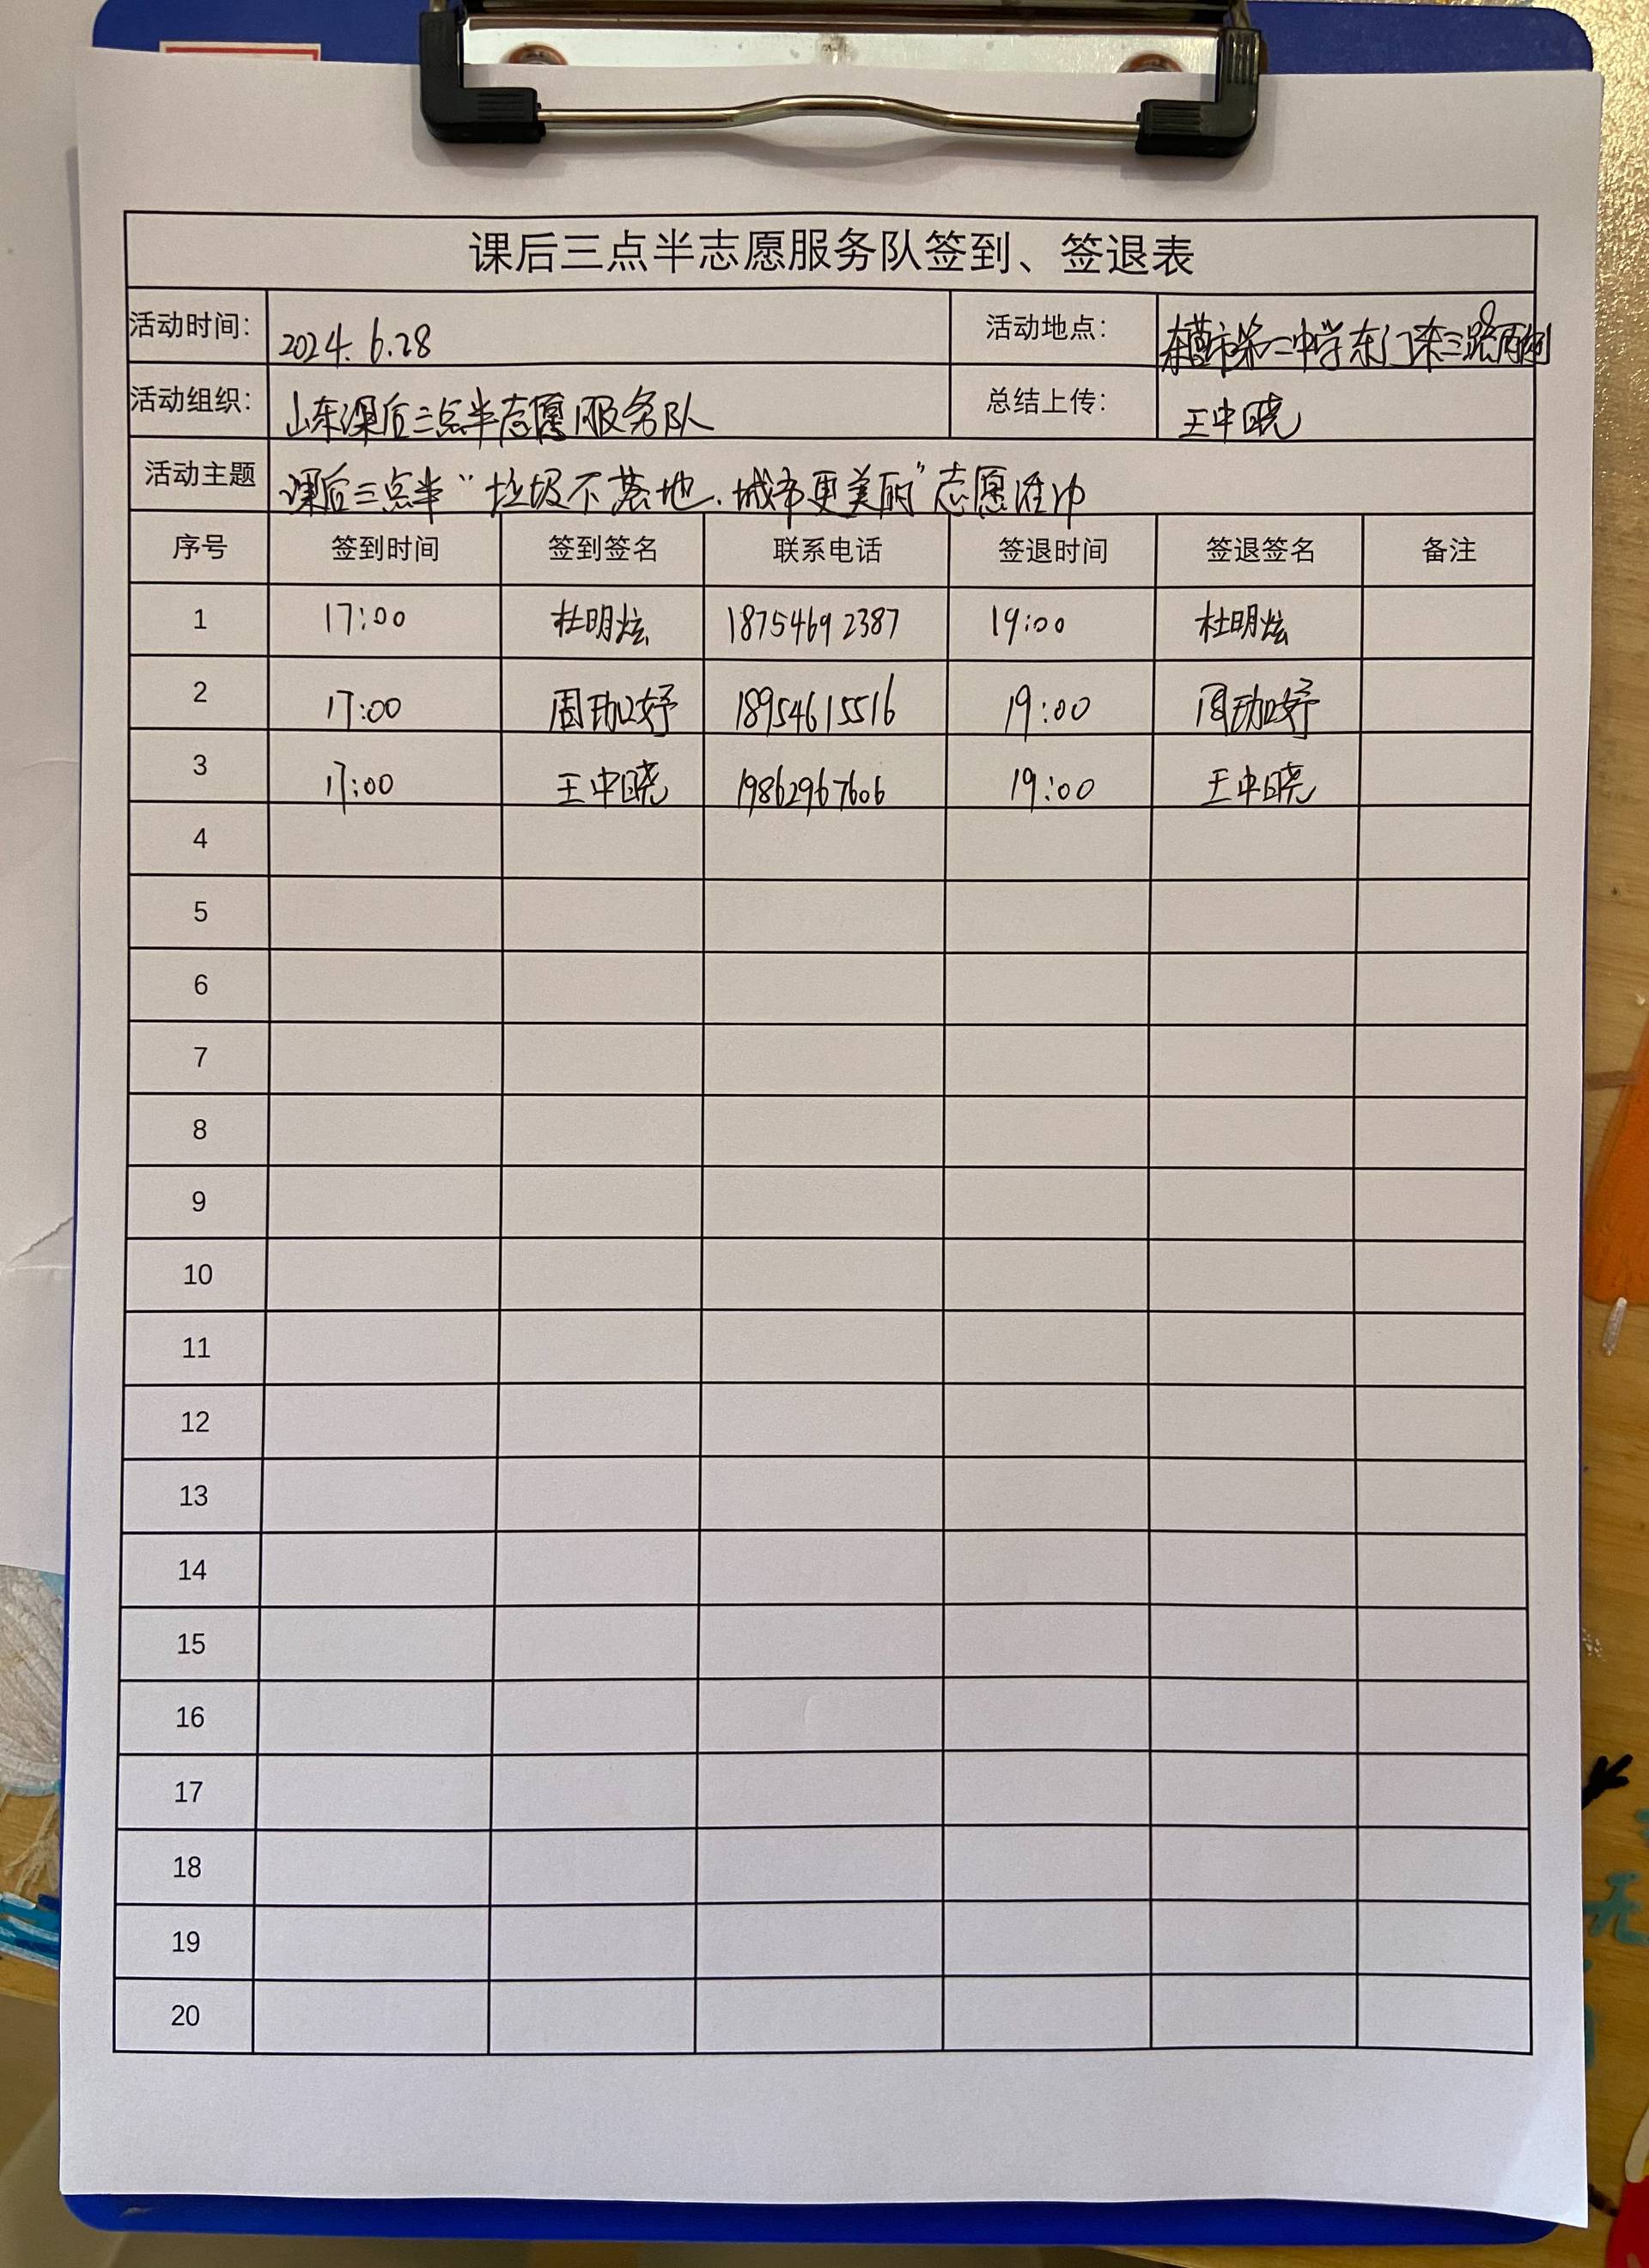 课后三点半志愿服务队签到、签退表
活动时间： 2024.6.28 活动地点： 东营市第一中学东门东三路两侧
活动组织： 山东课后三点半志愿服务队 总结上传： 王中晓
活动主题 课后三点半“垃圾不落地.城市更美丽”志愿活动
序号 签到时间 签到签名 联系电话 签退时间 签退签名 备注
1 17:00 杜明炫 18754692387 19:00 杜明炫
2 17:00 周妤 18954615516 19:00 周妤
3 17:00 王中晓 19862967606 19:00 王中晓
4
5
6
7
8
9
10
11
12
13
14
15
16
17
18
19
20